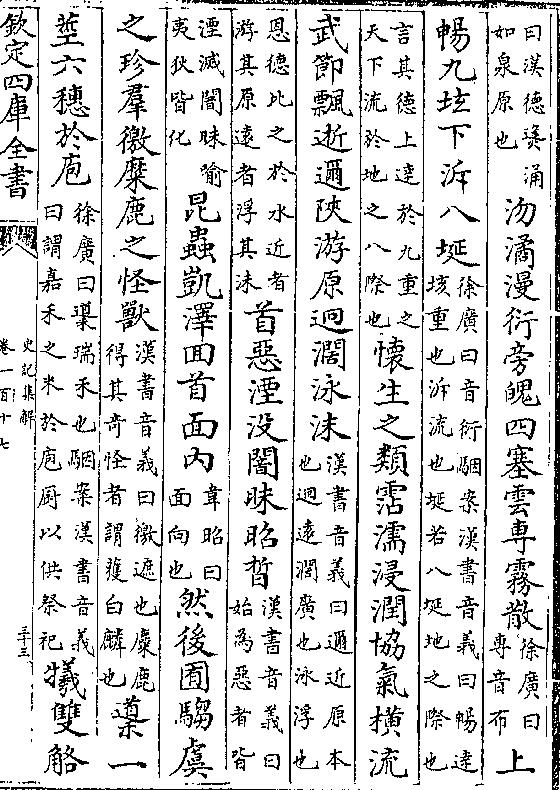 曰漢德羙涌如泉原也沕潏漫衍旁魄四塞雲専霧散徐廣曰専音布上
暢九垓下泝八埏徐廣曰音衍駰案漢書音義曰暢達垓重也泝流也埏若八埏地之際也
言其德上達於九重之天下流於地之八際也懷生之類霑濡浸潤協氣橫流
武節飄逝邇陜游原迥濶泳沬漢書音義曰邇近原本也迥遠濶廣也泳浮也
恩德比之於水近者游其原遠者浮其沬首惡湮没闇昧昭晳漢書音義曰始為惡者皆
湮滅闇昧喻夷狄皆化昆蟲凱澤回首面内韋昭曰面向也然後囿騶虞
之珍羣徼麋鹿之怪獸漢書音義曰徼遮也麋鹿得其奇怪者謂獲白麟也䆃一
莖六穗於庖徐廣曰䆃瑞禾也駰案漢書音義曰謂嘉禾之米於庖厨以供祭祀犧雙觡
欽定四庫全書
史記集解
卷一百十七
三十三